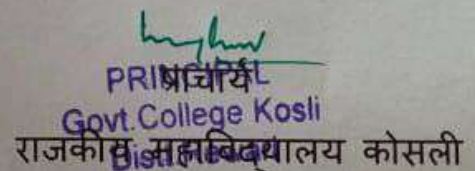 PRINCIPAL
प्राचार्य
Govt. College Kosli
राजकीय महाविद्यालय कोसली